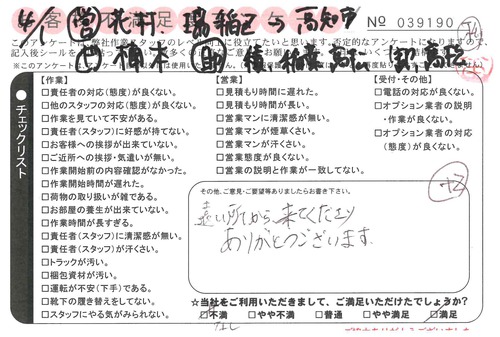 客 不満足
№ 039190
チェックリスト
【作業】
□責任者の対応(態度)が良くない。
□他のスタッフの対応(態度)が良くない。
□作業を見ていて不安がある。
□責任者(スタッフ)に好感が持てない。
□お客様への挨拶が出来ていない。
□ご近所への挨拶・気遣いが無い。
□作業開始前の内容確認がなかった。
□作業開始時間が遅れた。
□荷物の取り扱いが雑である。
□お部屋の養生が出来ていない。
□作業時間が長すぎる。
□責任者(スタッフ)に清潔感が無い。
□責任者(スタッフ)が汗くさい。
□トラックが汚い。
□梱包資材が汚い。
□運転が不安(下手)である。
□靴下の履き替えをしてない。
□スタッフにやる気がみられない。
【営業】
□見積もり時間に遅れた。
□見積もり時間が長い。
□営業マンに清潔感が無い。
□営業マンが煙草くさい。
□営業マンが汗くさい。
□営業態度が良くない。
□営業の説明と作業が一致してない。
【受付・その他】
□電話の対応が良くない。
□オプション業者の説明
・作業が良くない。
□オプション業者の対応
(態度)が良くない。
その他、ご意見・ご要望等ありましたらお書き下さい。
遠い所から、来てくださり
ありがとうございます。
☆当社をご利用いただきまして、ご満足いただけたでしょうか?
□不満 □やや不満 □普通 □やや満足 ☑満足
なし